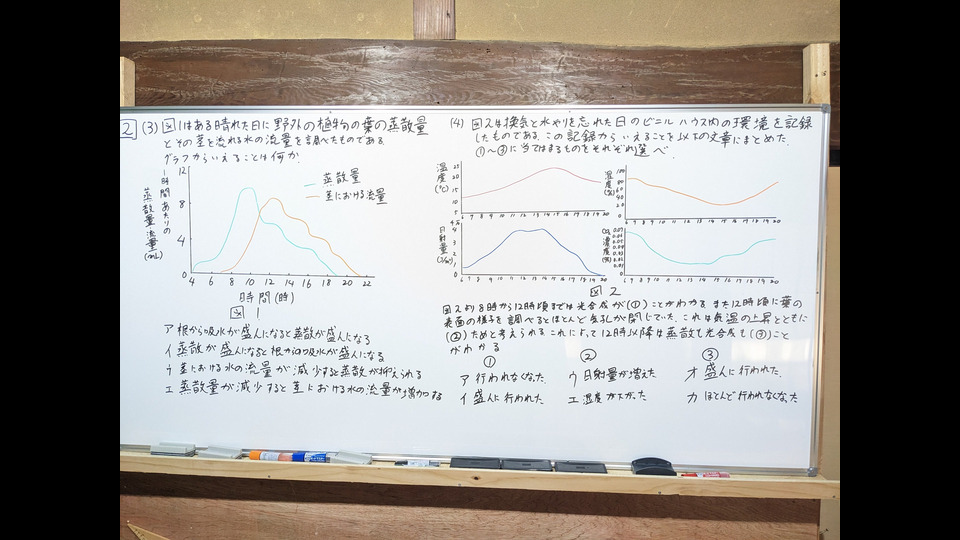 2 (3) 図1はある晴れた日に野外の植物の葉の蒸散量
とその茎を流れる水の流量を調べたものである。
グラフからいえることは何か。
一時間あたりの
蒸散量・流量(mL)
12
8
4
0
蒸散量
茎における流量
4 6 8 10 12 14 16 18 20 22
時間(時)
図1
ア 根から吸水が盛んになると蒸散が盛んになる
イ 蒸散が盛んになると根から吸水が盛んになる
ウ 茎における水の流量が減少すると蒸散が抑えられる
エ 蒸散量が減少すると茎における水の流量が増加する
(4) 図2は換気と水やりを忘れた日のビニルハウス内の環境を記録
したものである。この記録からいえることを以下の文章にまとめた。
①~③に当てはまるものをそれぞれ選べ。
温度(℃)
25
20
15
10
5
6 7 8 9 10 11 12 13 14 15 16 17 18 19 20
湿度(%)
100
80
60
40
20
0
6 7 8 9 10 11 12 13 14 15 16 17 18 19 20
日射量
4
3
2
1
0
6 7 8 9 10 11 12 13 14 15 16 17 18 19 20
CO₂濃度(%)
6 7 8 9 10 11 12 13 14 15 16 17 18 19 20
図2
図2より8時から12時頃までは光合成が(①)ことがわかる。また12時頃に葉の
表面の様子を調べるとほとんど気孔が閉じていた。これは気温の上昇とともに
(②)ためと考えられる。これによって12時以降は蒸散も光合成も(③)こと
がわかる
① ② ③
ア 行われなくなった ウ 日射量が増えた オ 盛んに行われた
イ 盛んに行われた エ 湿度が下がった カ ほとんど行われなくなった